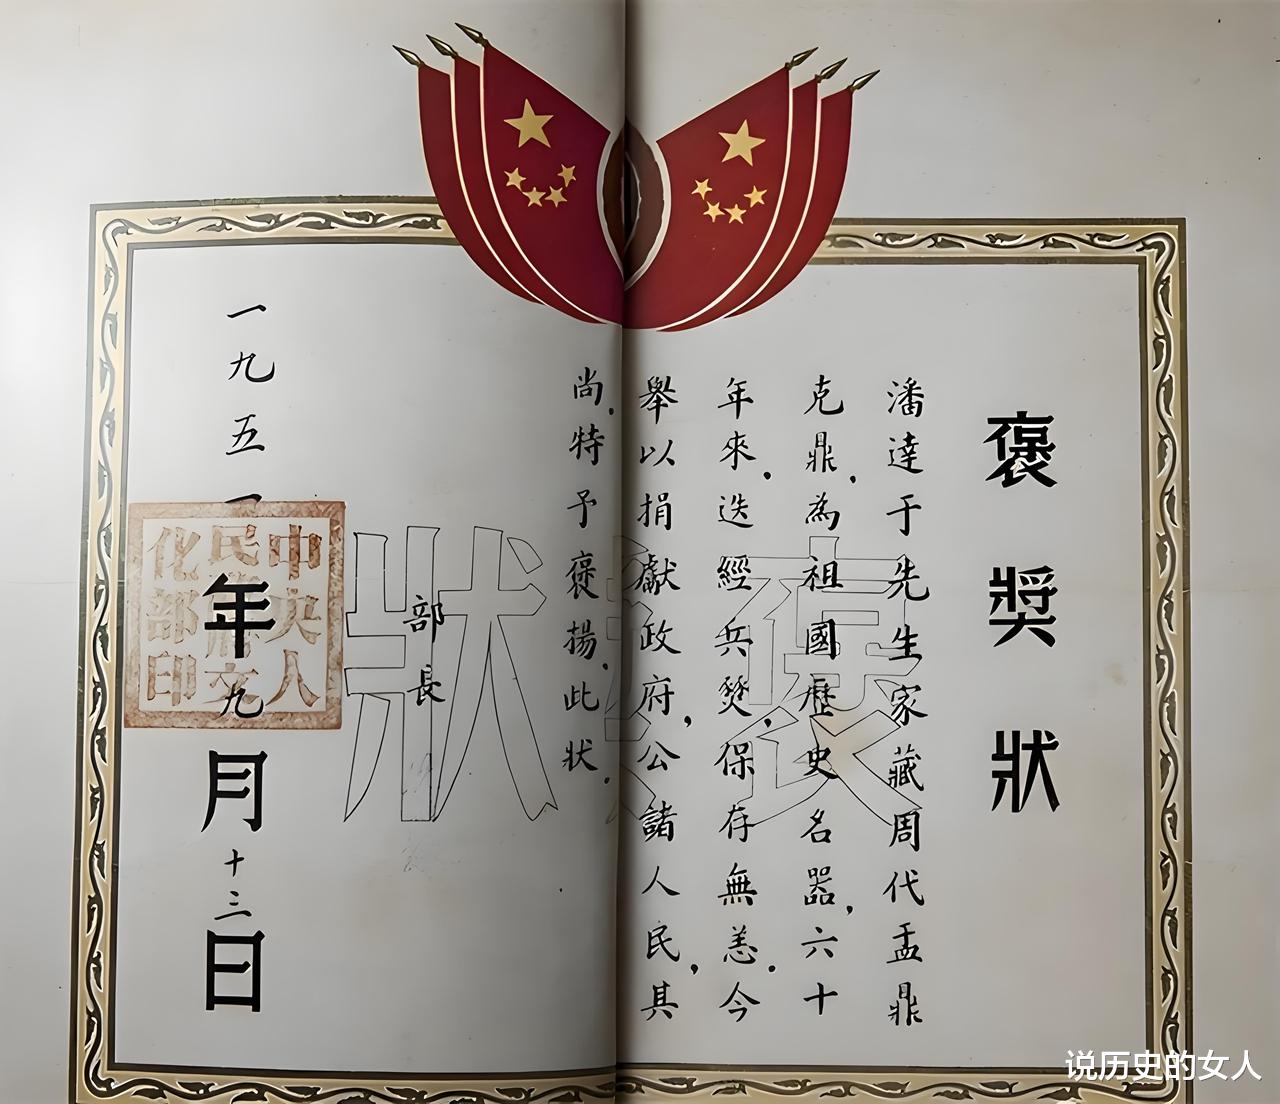 褒獎狀
潘達于先生家藏周代盂鼎
克鼎，為祖國歷史名器，六十
年來，迭經兵燹，保存無恙．今
舉以捐獻政府，公諸人民，其
尚，特予褒揚．此状．
部長
一九五一年九月十三日
中央人
民政府文
化部印
褒獎狀
说历史的女人